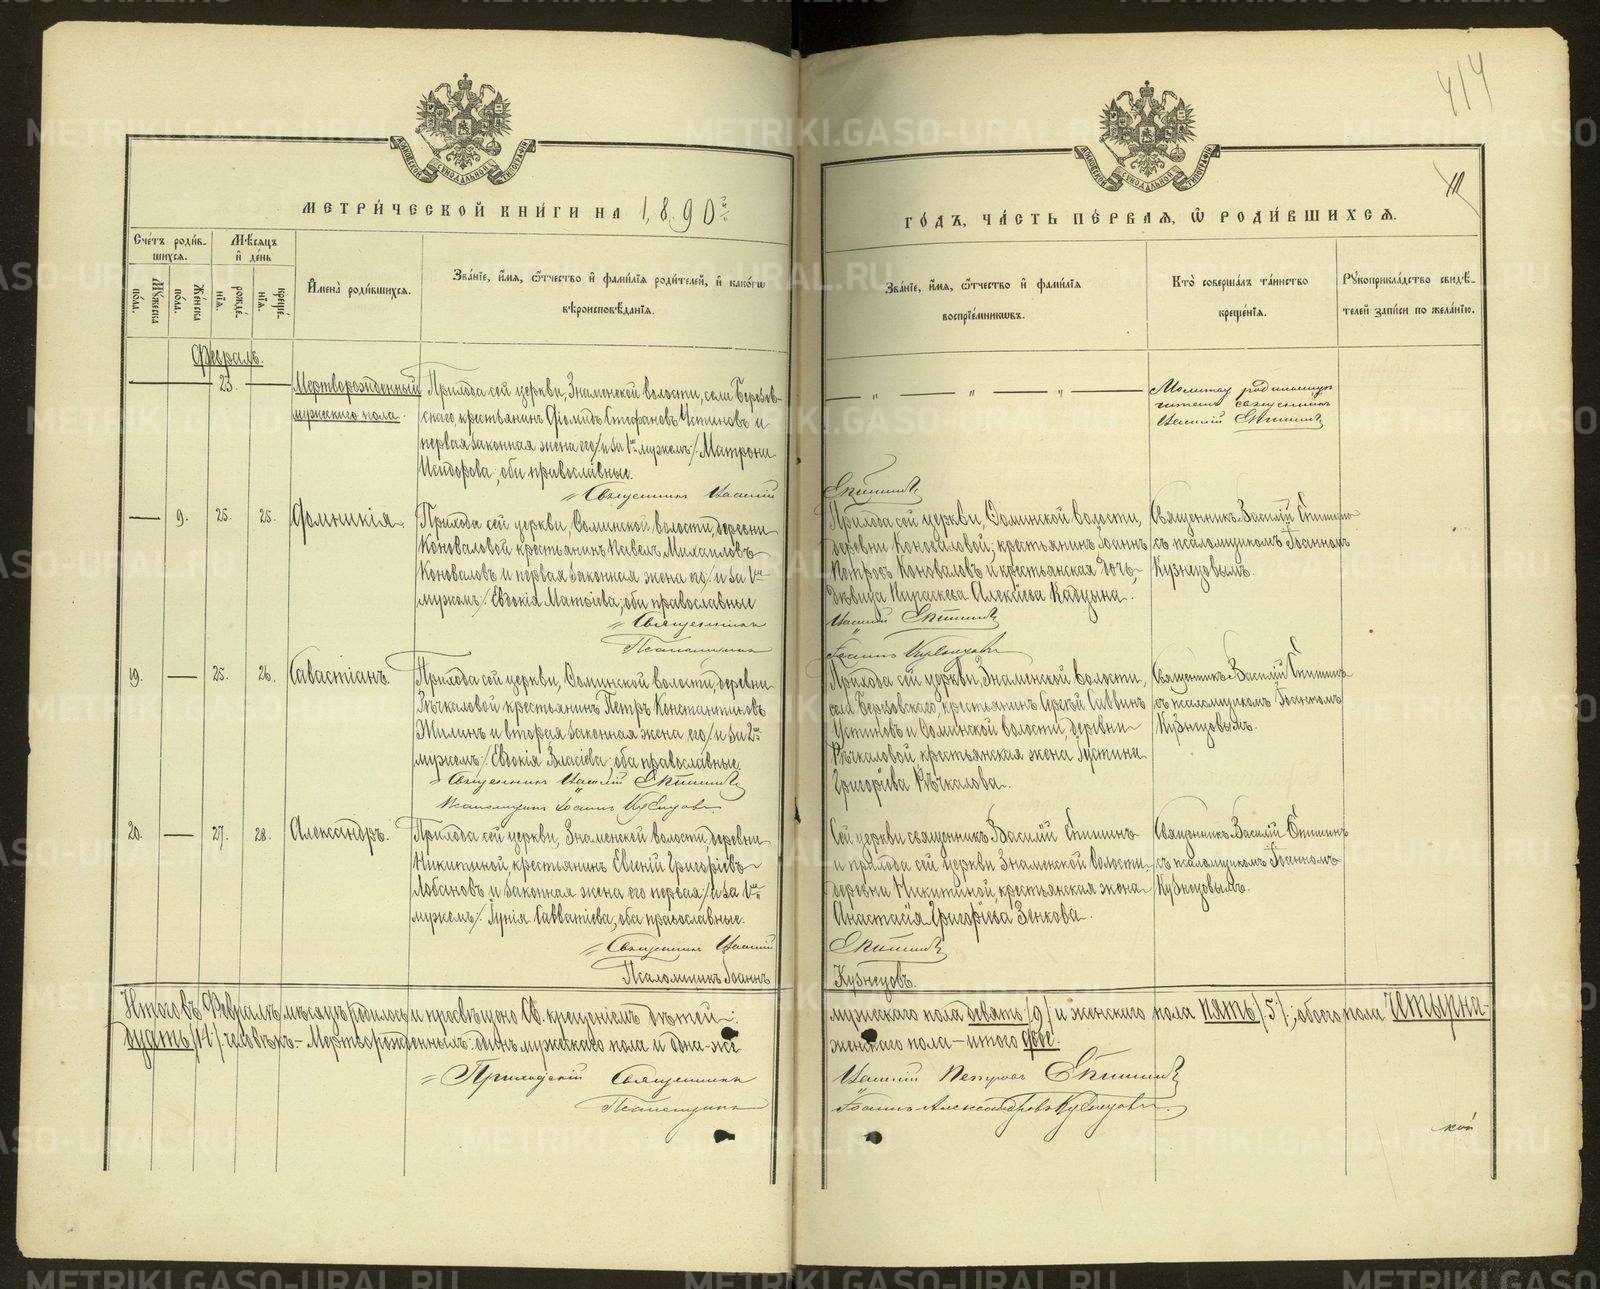 414
МЕТРИ́ЧЕСКОЙ КНИ́ГИ НА 1890й
ГО́ДЪ, ЧА́СТЬ ПЕ́РВАЯ, Ѡ РОДИ́ВШИХСЯ.
Сче́тъ роди́в-
шихся.
Мѣ́сяцъ
и҆ де́нь
Мꙋ́жеска
по́ла.
Же́нска
по́ла.
рожде́-
нїѧ.
креще́-
нїѧ.
И҆мена̀ роди́вшихся.
Зва́нїе, и҆́мѧ, ѻ҆́тчество и҆ фами́лїѧ роди́телей, и҆ како́гѡ
вѣроисповѣ́данїѧ.
Зва́нїе, и҆́мѧ, ѻ҆́тчество и҆ фами́лїѧ
воспрїе́мникѡвъ.
Кто̀ соверша́лъ та́инство
креще́нїѧ.
Рꙋкоприкла́дство свидѣ́-
телей за́писи по жела́нїю.
Февраль.
23.
Мертворожденный
мужескаго пола.
Прихода сей церкви, Знаменской волости, села Березов-
скаго, крестьянинъ Стефановъ Устиновъ и
первая законная жена его /и за 1мъ мужемъ/ Матрона
Исидорова, оба православные.
Священникъ Василій
Молитву родильницѣ
читалъ священникъ
Василій Епишинъ
Епишинъ
9. 25. 25. Домникія
Прихода сей церкви, Ѳоминской волости, деревни
Коноваловой крестьянинъ Павелъ Михаиловъ
Коноваловъ и первая законная жена его /и за 1мъ
мужемъ/ Евдокія Матѳіева, оба православные
Священникъ
Псаломщикъ
Прихода сей церкви, Ѳоминской волости,
деревни Коноваловой, крестьянинъ Іоаннъ
Петровъ Коноваловъ и крестьянская дочь,
дѣвица Параскева Алексіева
Василій Епишинъ
Іоаннъ Кузнецовъ
Священникъ Василій Епишинъ
съ псаломщикомъ Іоанномъ
Кузнецовымъ.
19. 25. 26. Савастіанъ.
Прихода сей церкви, Ѳоминской волости, деревни
Рѣчкаловой крестьянинъ Петръ Константиновъ
Жилинъ и вторая законная жена его /и за 2мъ
мужемъ/ Евдокія Власіева, оба православные.
Священникъ Василій Епишинъ
Псаломщикъ Іоаннъ Кузнецовъ
Прихода сей церкви, Знаменской волости,
села Березовскаго, крестьянинъ Сергѣй Саввинъ
Устиновъ и Ѳоминской волости, деревни
Рѣчкаловой крестьянская жена Іустина
Григоріева Рѣчкалова.
Священникъ Василій Епишинъ
съ псаломщикомъ Іоанномъ
Кузнецовымъ.
20. 27. 28. Александръ.
Прихода сей церкви, Знаменской волости, деревни
Никитиной, крестьянинъ Евгеній Григоріевъ
Лобановъ и законная жена его первая /и за 1мъ
мужемъ/ Іунія Савватіева, оба православные.
Священникъ Василій
Псаломщикъ Іоаннъ
Сей церкви священникъ Василій Епишинъ
и прихода сей церкви Знаменской волости,
деревни Никитиной, крестьянская жена
Анастасія Григоріева Зенкова.
Епишинъ
Кузнецовъ.
Священникъ Василій Епишинъ
съ псаломщикомъ Іоанномъ
Кузнецовымъ.
Итого въ Февралѣ мѣсяцѣ родилось и просвѣщено Св. крещеніемъ дѣтей: мужескаго пола девять /9/ и женскаго пола пять /5/, обоего пола четырна-
дцать /14/ человѣкъ.- Мертворожденныхъ: одинъ мужескаго пола и одна же женскаго пола - итого двое.
Приходскій Священникъ Василій Петровъ Епишинъ
Псаломщикъ Іоаннъ Александровъ Кузнецовъ.
METRIKI.GASO-URAL.RU